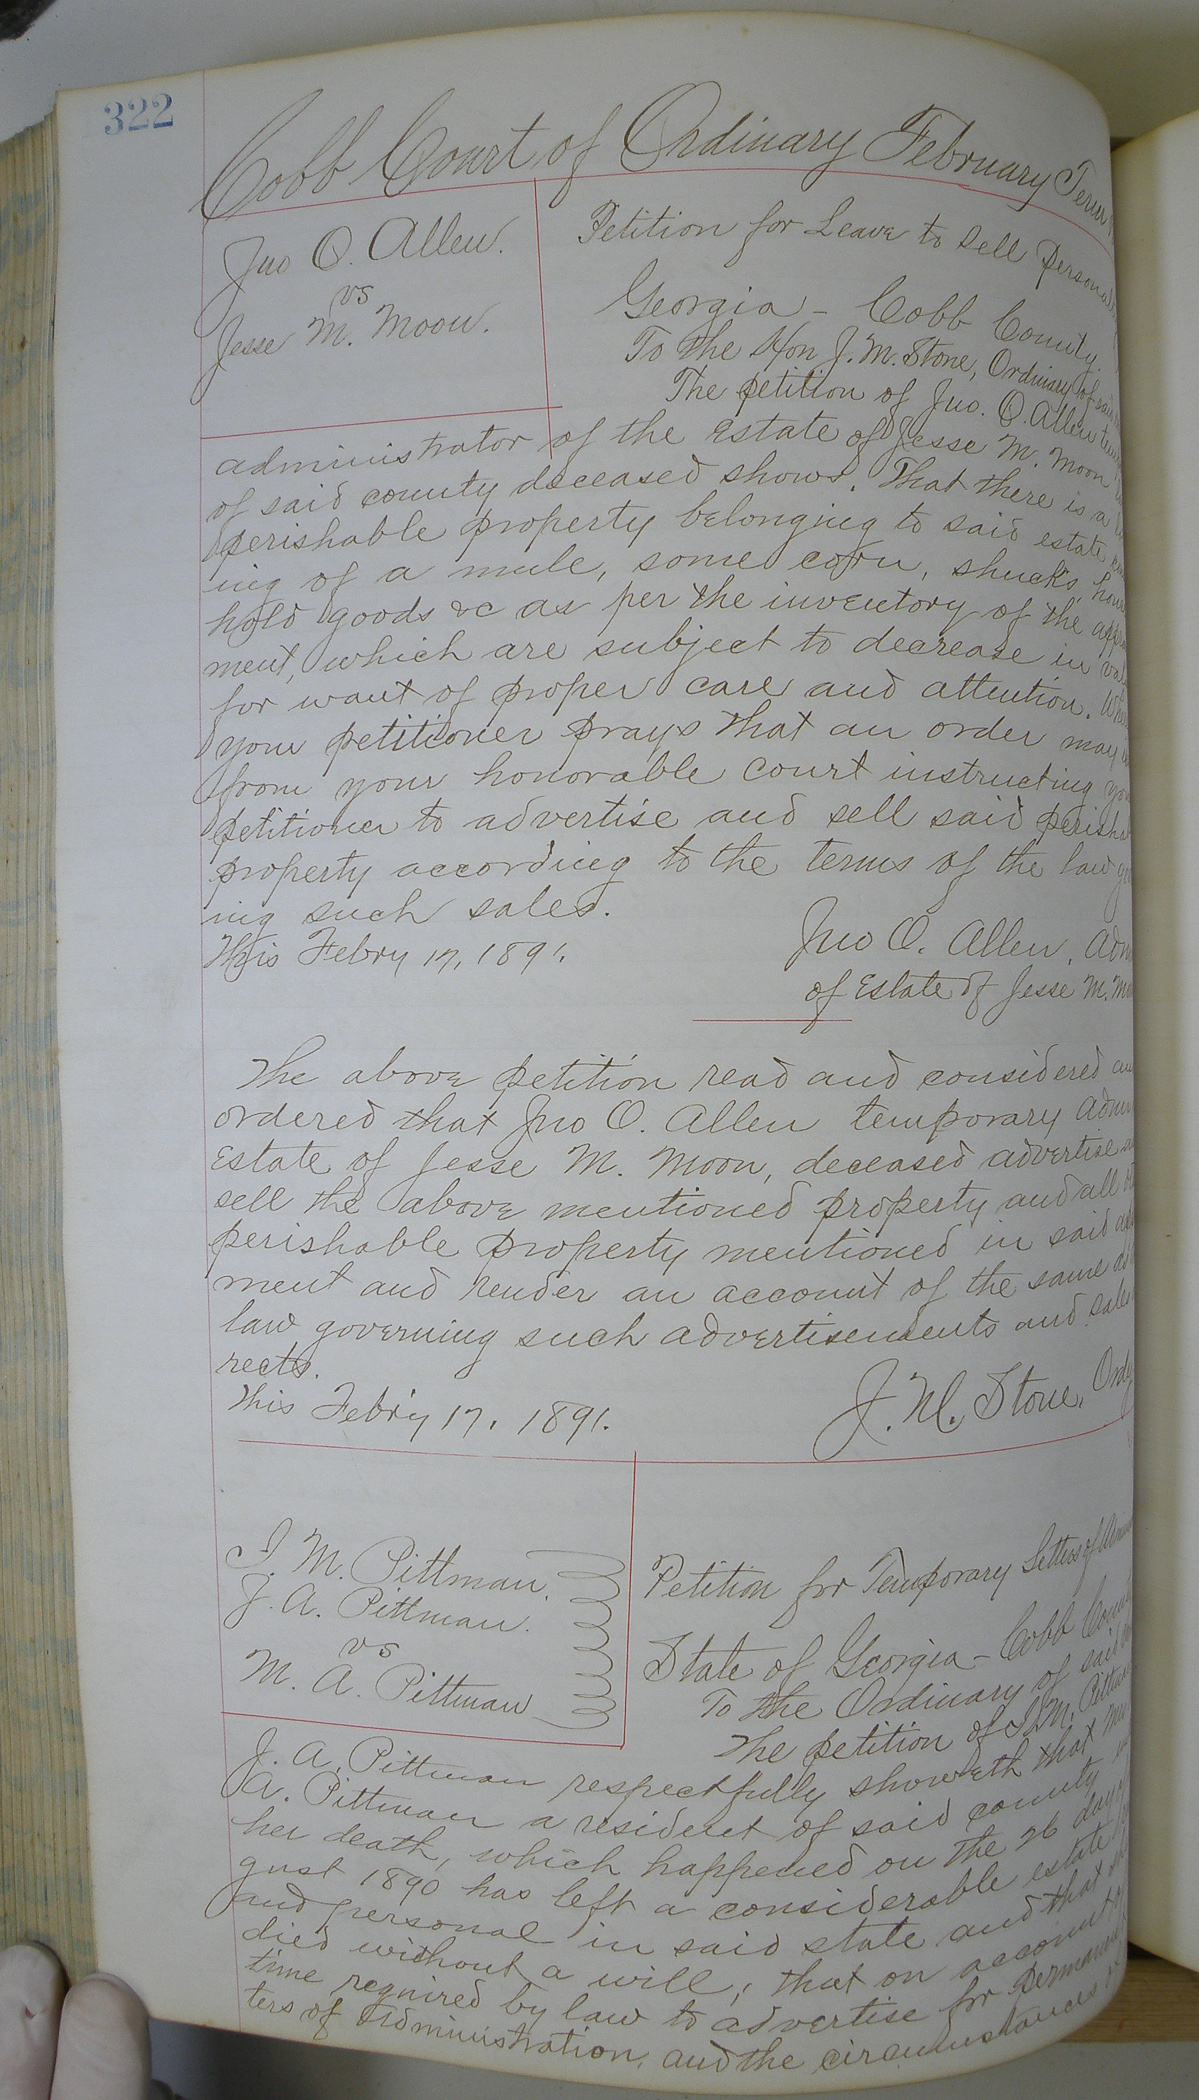 322
Cobb Court of Ordinary February Term
Jno O. Allen.
vs
Jesse M. Moon.
Petition for Leave to Sell
Georgia - Cobb County.
To the Hon J. M. Stone, Ordinary of said
The petition of Jno. O. Allen
administrator of the Estate of Jesse M. Moon
of said county deceased shows. That there is a
perishable property belonging to said estate
ing of a mule, some corn, shucks,
hold goods &c as per the inventory of the
ment, which are subject to decrease in
for want of proper care and attention.
your petitioner prays that an order may
from your honorable court instructing
petitioner to advertise and sell said
property according to the terms of the law
ing such sales.
This Febry 17, 1891.
Jno O. Allen,
of Estate of Jesse M.
The above petition read and considered
ordered that Jno O. Allen temporary
Estate of Jesse M. Moon, deceased advertise
sell the above mentioned property and all
perishable property mentioned in said
ment and render an account of the same
law governing such advertisements and
rects.
This Febr'y 17, 1891.
J. M. Stone,
I. M. Pittman.
J. A. Pittman.
vs
M. A. Pittman
Petition for Temporary Letters of
State of Georgia - Cobb
To the Ordinary of said
The petition of I. M.
J. A. Pittman respectfully showeth that
A. Pittman a resident of said county
her death, which happened on the 26 day
gust 1890 has left a considerable estate
and personal in said state and that
died without a will; that on account
time required by law to advertise for
ters of Administration, and the circumstances